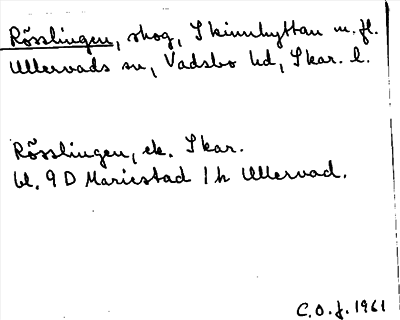 Rösslingen, skog, Skinnhyttan m.fl.
Ullervads sn, Vadsbo hd, Skar. l.
Rösslingen, ek. Skar.
bl. 9 D Mariestad 1 h Ullervad.
C.O.f. 1961